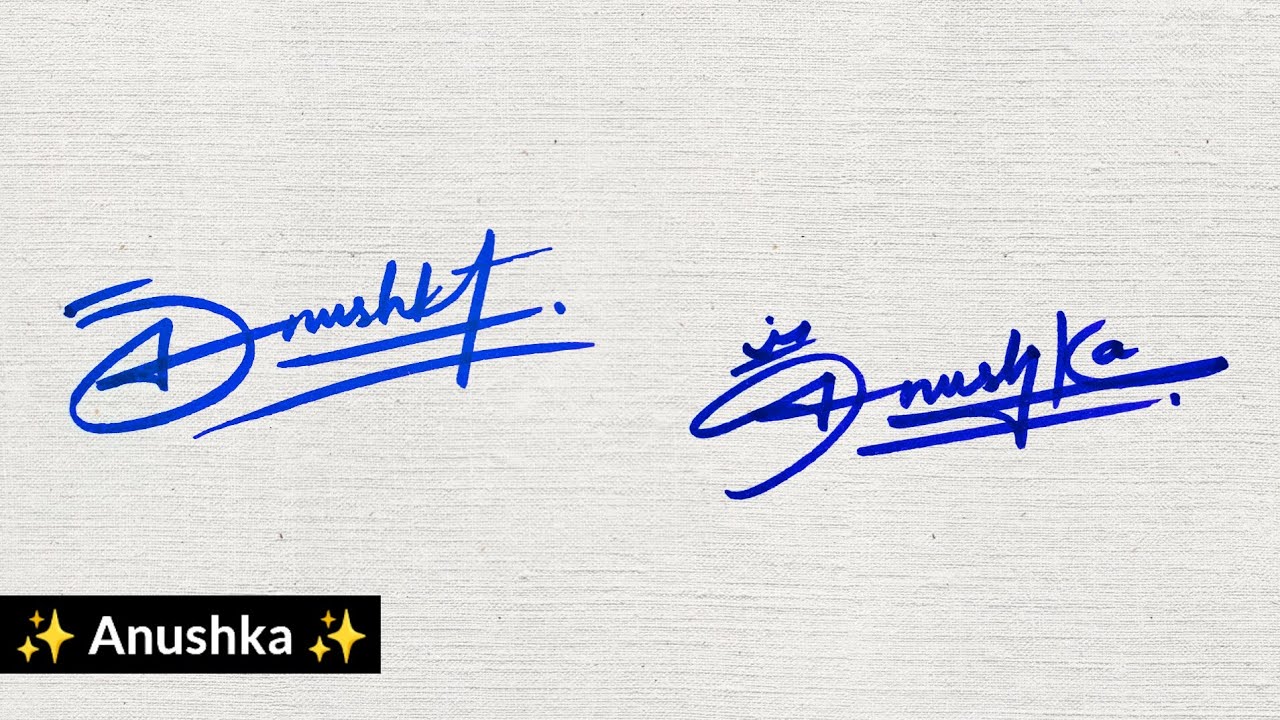 Anushka.
Anushka.
✨ Anushka ✨